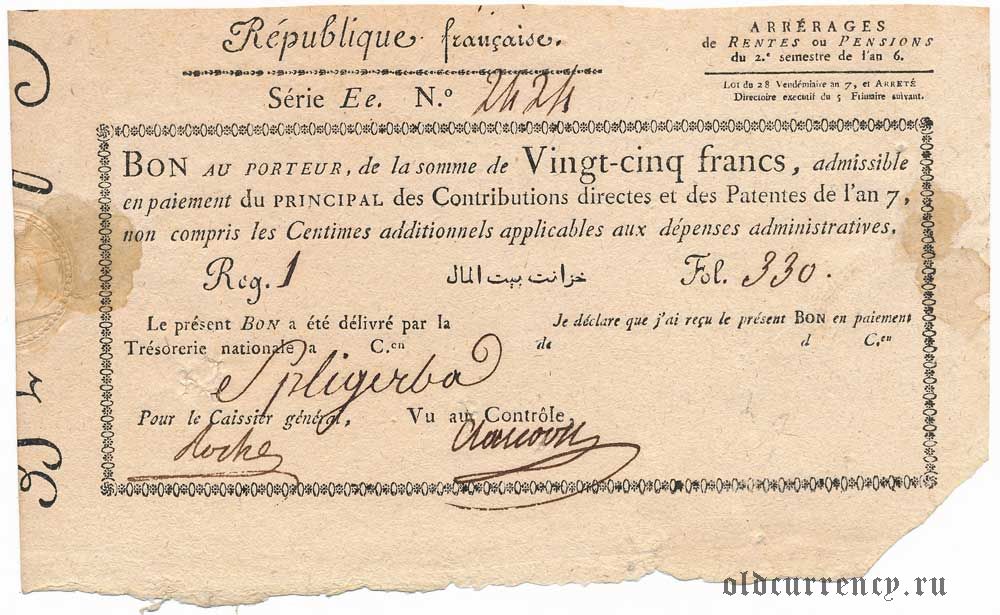 République française.
ARRÉRAGES
de RENTES ou PENSIONS
du 2.e semestre de l'an 6.
Série Ee. N.o 2424
Loi du 28 Vendémiaire an 7, et ARRETÉ
Directoire executif du 5 Frimaire suivant.
BON AU PORTEUR, de la somme de Vingt-cinq francs, admissible
en paiement du PRINCIPAL des Contributions directes et des Patentes de l'an 7,
non compris les Centimes additionnels applicables aux dépenses administratives.
Reg. 1 خزانت بيت المال Fol. 330.
Le présent BON a été délivré par la
Trésorerie nationale a C.en
Spligerba
Je déclare que j'ai reçu le présent BON en paiement
de d C.en
Pour le Caissier général, Vu au Contrôle,
oldcurrency.ru